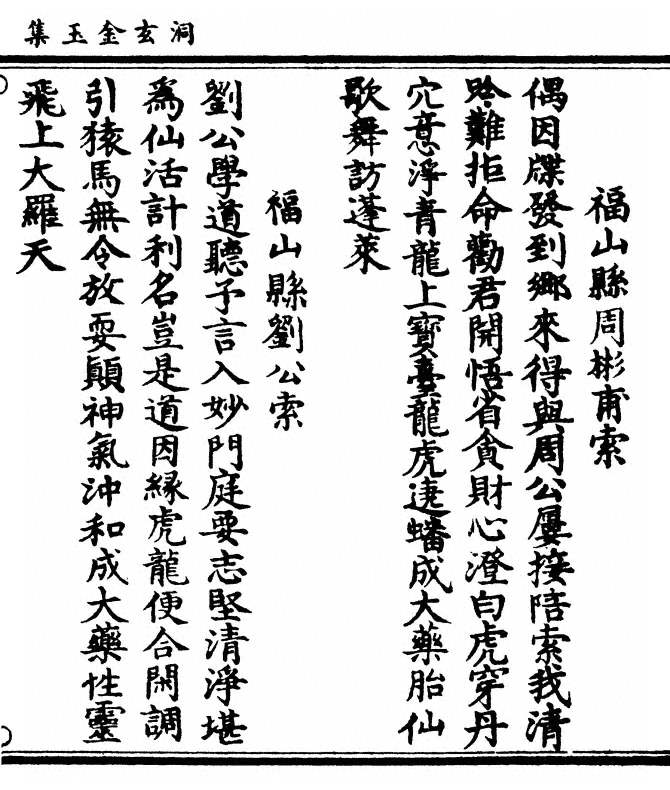 洞玄金玉集
福山縣周彬甫索
偶因牒發到鄉來得與周公屢接陪索我清
吟難拒命勸君開悟省貪財心澄白虎穿丹
穴意淨青龍上寶臺龍虎連蟠成大藥胎仙
歌舞訪蓬萊
福山縣劉公索
劉公學道聽予言入妙門庭要志堅清淨堪
為仙活計利名豈是道因緣虎龍便合閑調
引猿馬無令放耍顛神氣沖和成大藥性靈
飛上大羅天